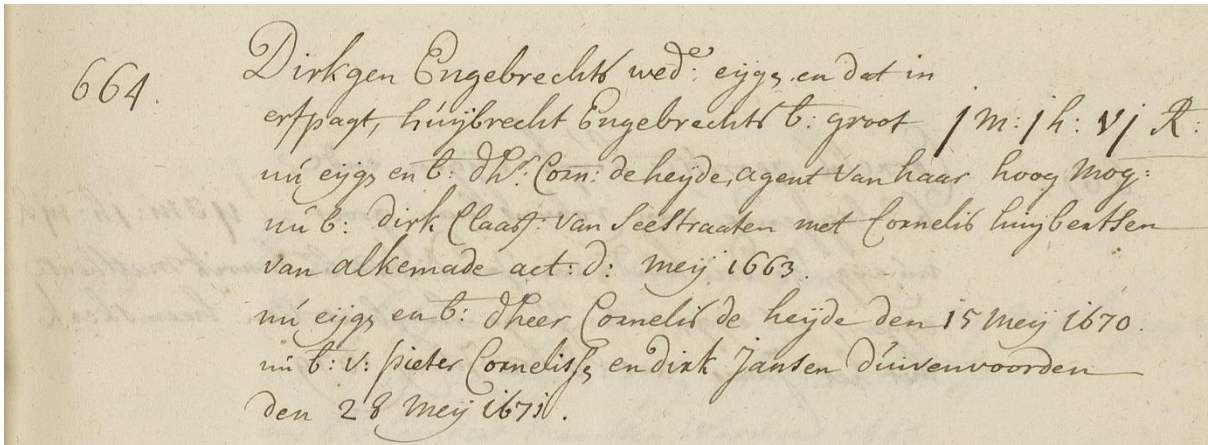 664. Dirkgen Engebrechts wed:e eijgr en dat in
erfpagt, húijbrecht Engebrechts b: groot j m: j h: vj R:
nú eijgr en b: dhr: Corn: de heijde, agent van haar hoog mog:
nú b: dirk Claasz: van Seestraaten met Cornelis huijbertsen
van alkemade act: d: meij 1663.
nú eijgr en b: dheer Cornelis de heijde den 15 meij 1670.
nú b: v: pieter Cornelisse en dirk Jansen dúivenvoorden
den 28 meij 1671.